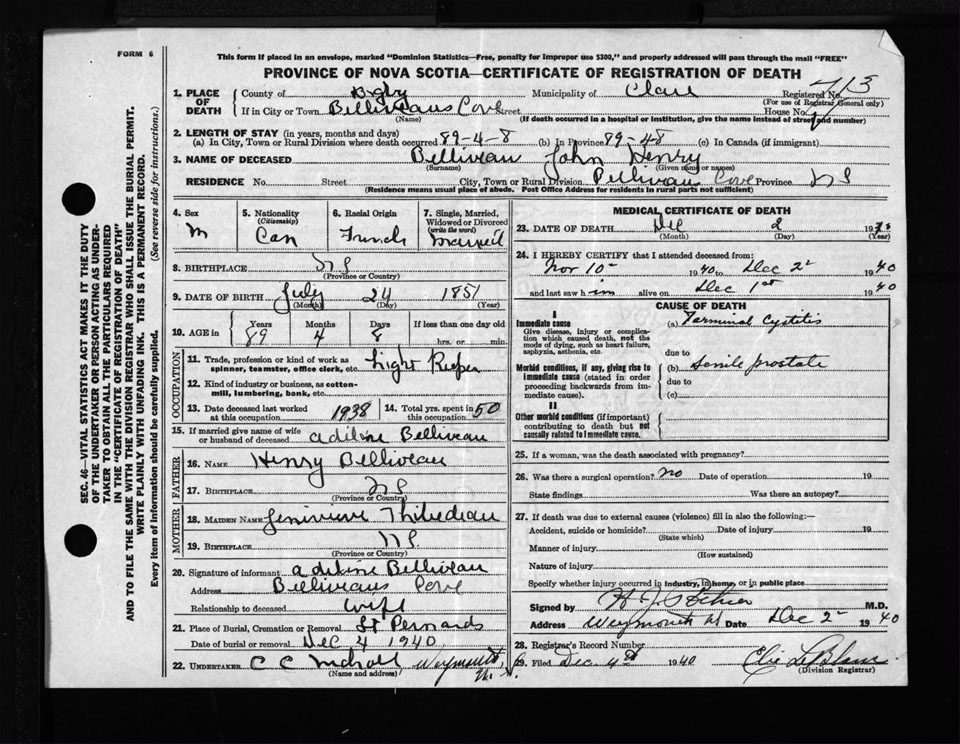 FORM 6
This form if placed in an envelope, marked "Dominion Statistics—Free, penalty for improper use $300," and properly addressed will pass through the mail "FREE"
PROVINCE OF NOVA SCOTIA—CERTIFICATE OF REGISTRATION OF DEATH
SEC. 46—VITAL STATISTICS ACT MAKES IT THE DUTY
OF THE UNDERTAKER OR PERSON ACTING AS UNDER-
TAKER TO OBTAIN ALL THE PARTICULARS REQUIRED
IN THE "CERTIFICATE OF REGISTRATION OF DEATH"
AND TO FILE THE SAME WITH THE DIVISION REGISTRAR WHO SHALL ISSUE THE BURIAL PERMIT.
WRITE PLAINLY WITH UNFADING INK. THIS IS A PERMANENT RECORD.
Every item of information should be carefully supplied. (See reverse side for instructions.)
1. PLACE OF DEATH County of Digby Municipality of Clare Registered No. 713
(For use of Registrar General only)
If in City or Town Belliveaus Cove Street House No.
(Name) (If death occurred in a hospital or institution, give the name instead of street and number)
2. LENGTH OF STAY (in years, months and days)
(a) In City, Town or Rural Division where death occurred 89-4-8 (b) In Province 89-4-8 (c) In Canada (if immigrant)
3. NAME OF DECEASED Belliveau John Henry
(Surname) (Given name or names)
RESIDENCE No. Street City, Town or Rural Division Bellivaus Cove Province NS
(Residence means usual place of abode. Post Office Address for residents in rural parts not sufficient)
4. Sex M
5. Nationality (Citizenship) Can
6. Racial Origin French
7. Single, Married, Widowed or Divorced (write the word) Married
8. BIRTHPLACE NS
(Province or Country)
9. DATE OF BIRTH July 24 1851
(Month) (Day) (Year)
10. AGE in Years 89 Months 4 Days 8 If less than one day old hrs. or min.
OCCUPATION
11. Trade, profession or kind of work as spinner, teamster, office clerk, etc. Light Keeper
12. Kind of industry or business, as cotton-mill, lumbering, bank, etc.
13. Date deceased last worked at this occupation 1938 14. Total yrs. spent in this occupation 50
15. If married give name of wife or husband of deceased Adiline Belliveau
FATHER
16. NAME Henry Belliveau
17. BIRTHPLACE NS
(Province or Country)
MOTHER
18. MAIDEN NAME Genivieve Thibedeau
19. BIRTHPLACE NS
(Province or Country)
20. Signature of informant Adiline Belliveau
Address Belliveaus Cove
Relationship to deceased wife
21. Place of Burial, Cremation or Removal St Bernards
Date of burial or removal Dec 4 1940
22. UNDERTAKER C C Weymouth, N.S.
(Name and address)
MEDICAL CERTIFICATE OF DEATH
23. DATE OF DEATH Dec 2 19
(Month) (Day) (Year)
24. I HEREBY CERTIFY that I attended deceased from:
Nov 10 1940 to Dec 2 1940
and last saw him alive on Dec 1st 1940
CAUSE OF DEATH
I
Immediate cause
Give disease, injury or complication which caused death, not the mode of dying, such as heart failure, asphyxia, asthenia, etc.
(a) Terminal Cystitis
due to
Morbid conditions, if any, giving rise to immediate cause (stated in order proceeding backwards from immediate cause).
(b) Senile prostate
due to
(c)
II
Other morbid conditions (if important) contributing to death but not causally related to immediate cause.
25. If a woman, was the death associated with pregnancy?
26. Was there a surgical operation? No Date of operation 19
State findings Was there an autopsy?
27. If death was due to external causes (violence) fill in also the following:—
Accident, suicide or homicide? Date of injury 19
(State which)
Manner of injury
(How sustained)
Nature of injury
Specify whether injury occurred in industry, in home, or in public place
Signed by M.D.
Address Weymouth Date Dec 2 1940
28. Registrar's Record Number
29. Filed Dec 4th 1940 Elie LeBlanc
(Division Registrar)